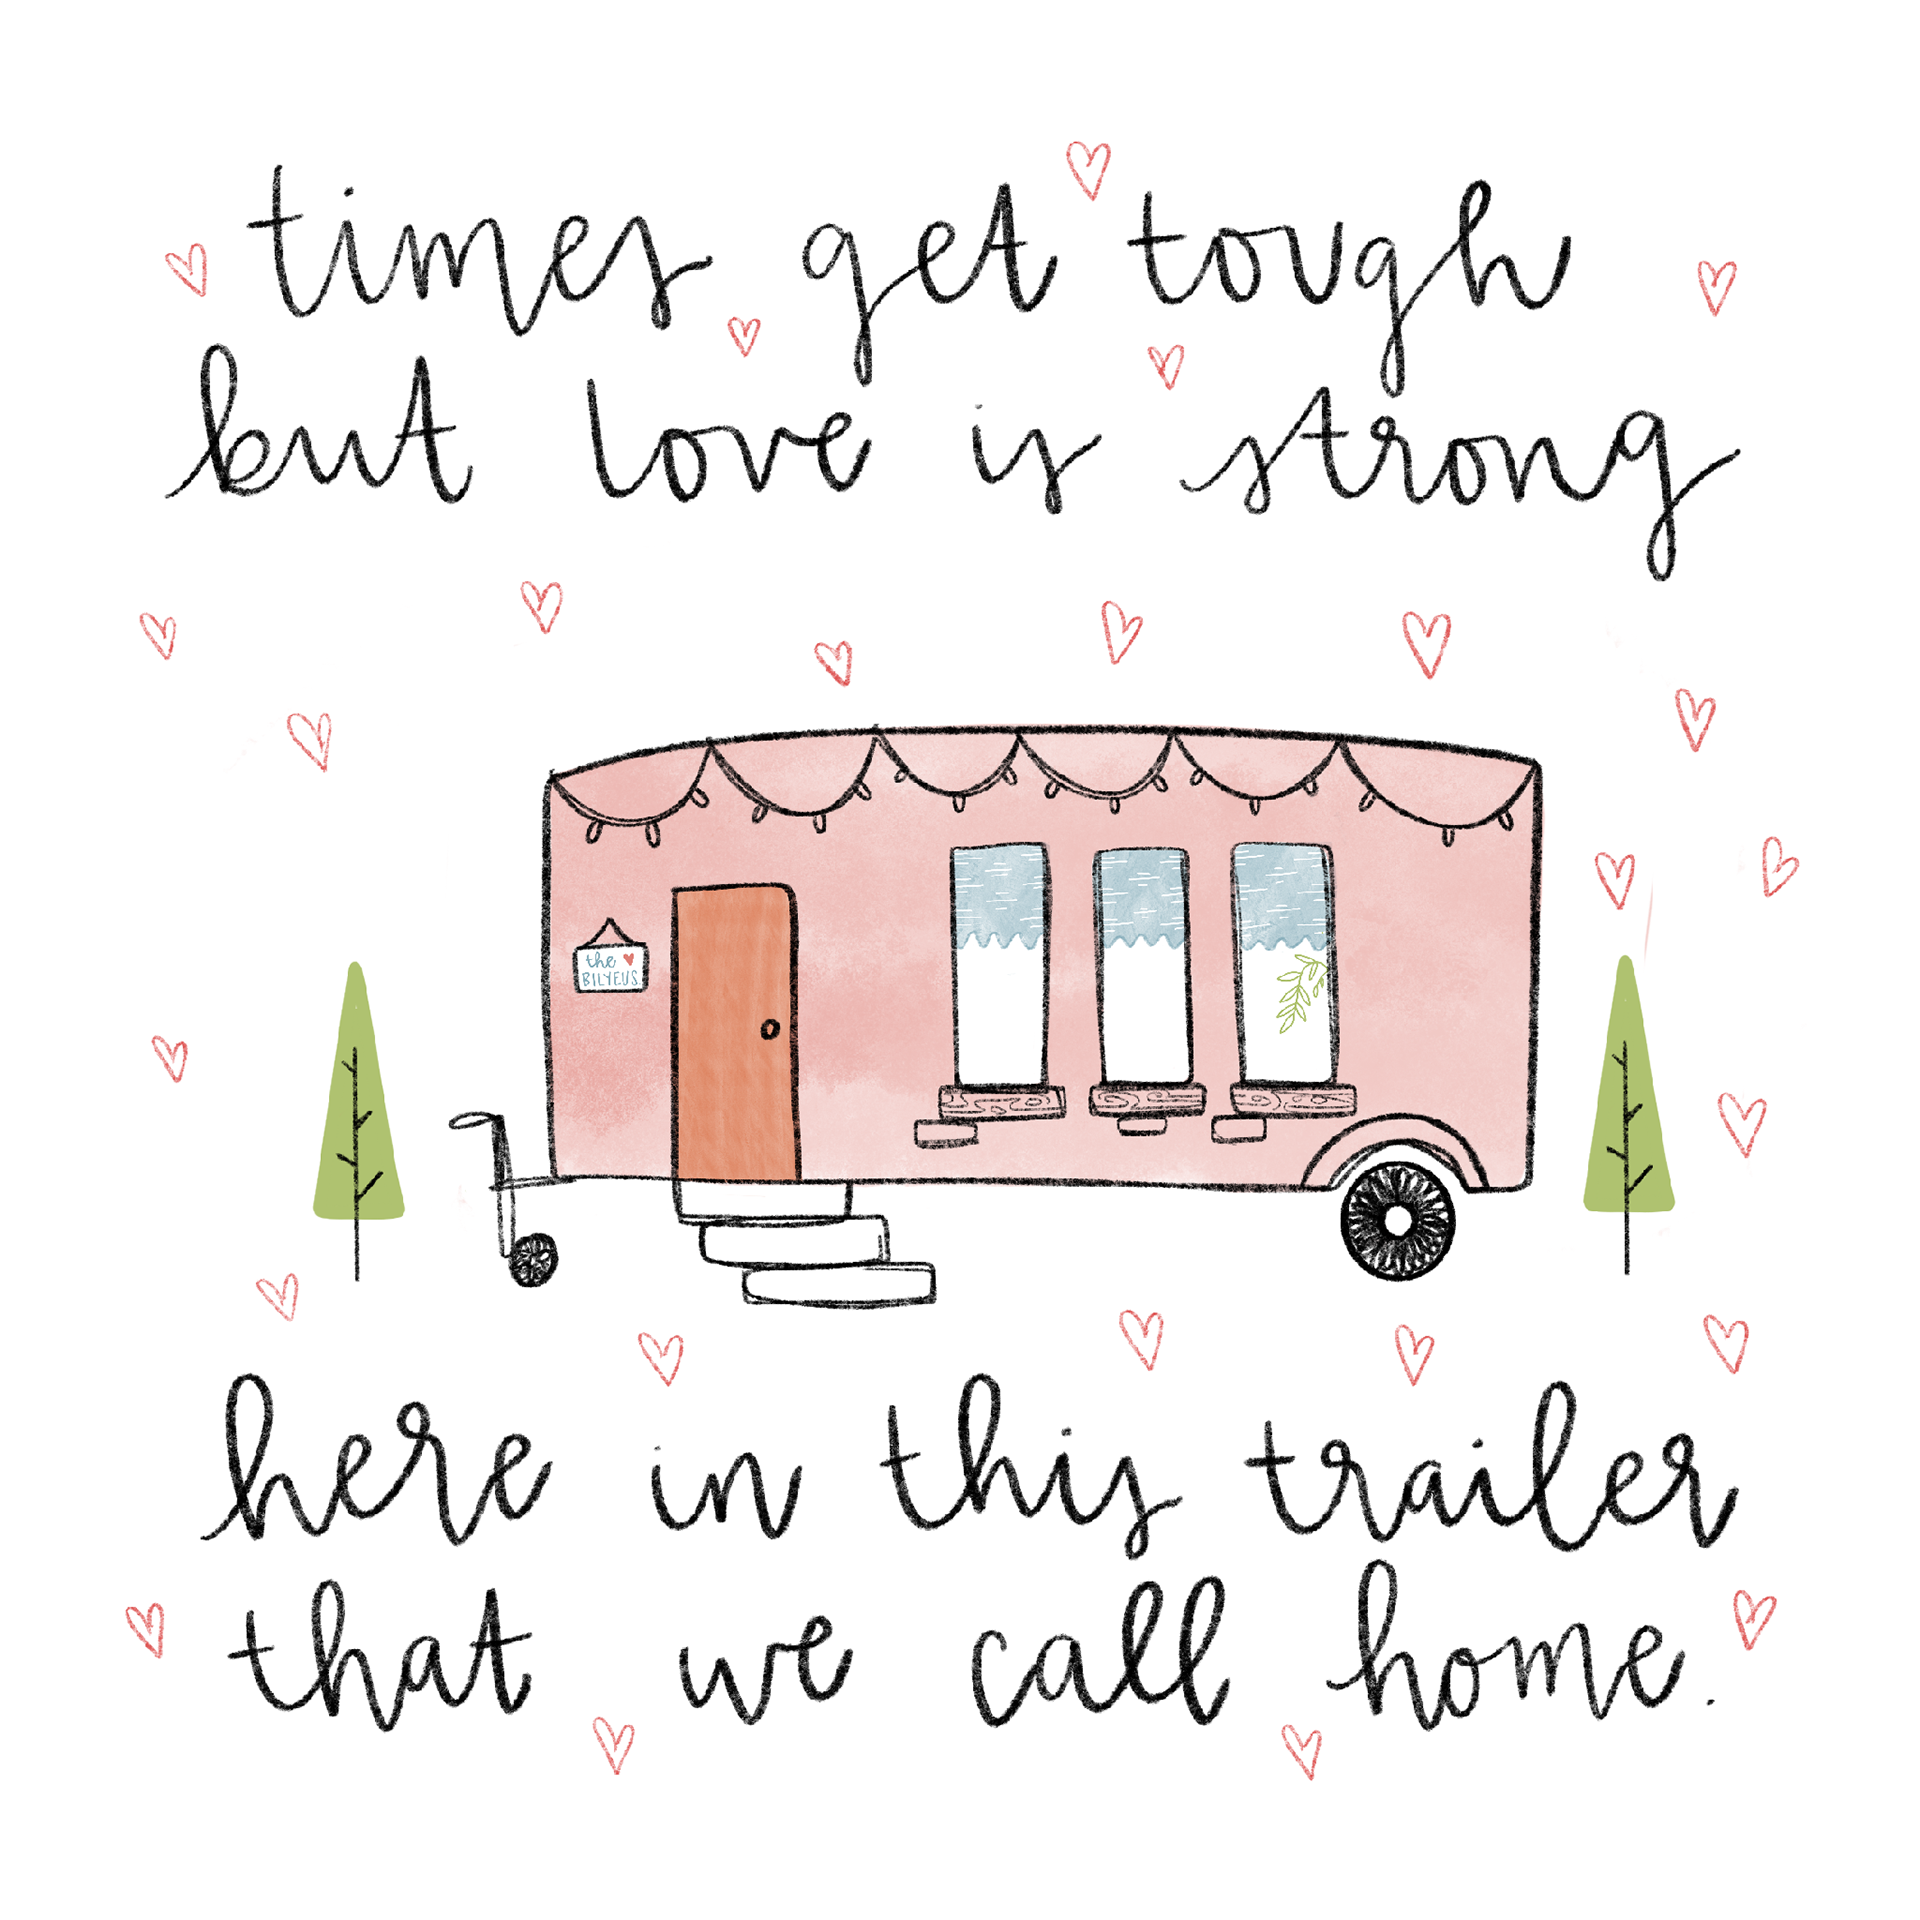 times get tough
but love is strong
the
BILYEUS
here in this trailer
that we call home.